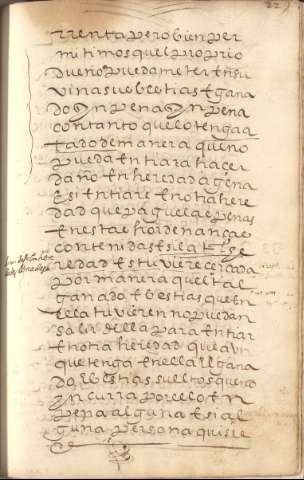 rrenta pero bien per
mitimos quel proprio
dueño pueda meter en su
vina sus bestias E gana
do yn pena yn pena
con tanto que lo tenga a
tado de manera que no
pueda Entrar a hacer
daño En heredad agena
E si Entrare En otra here
dad que pague las penas
En esta hordenança
contenidas E si la tal he
redad Estuviere cercada
por manera quel tal
ganado E bestias que En
Ella tuvieren no puedan
salir della para Entrar
En otra heredad que aun
que tenga En ella El gana
do E bestias sueltos que no
yncurra por ello En
pena alguna E si al
guna persona quisie